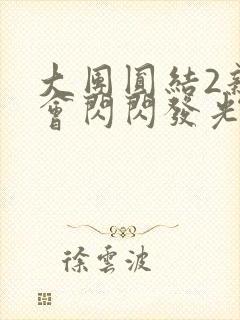 大團圓結2
會閃閃發光
徐雲波